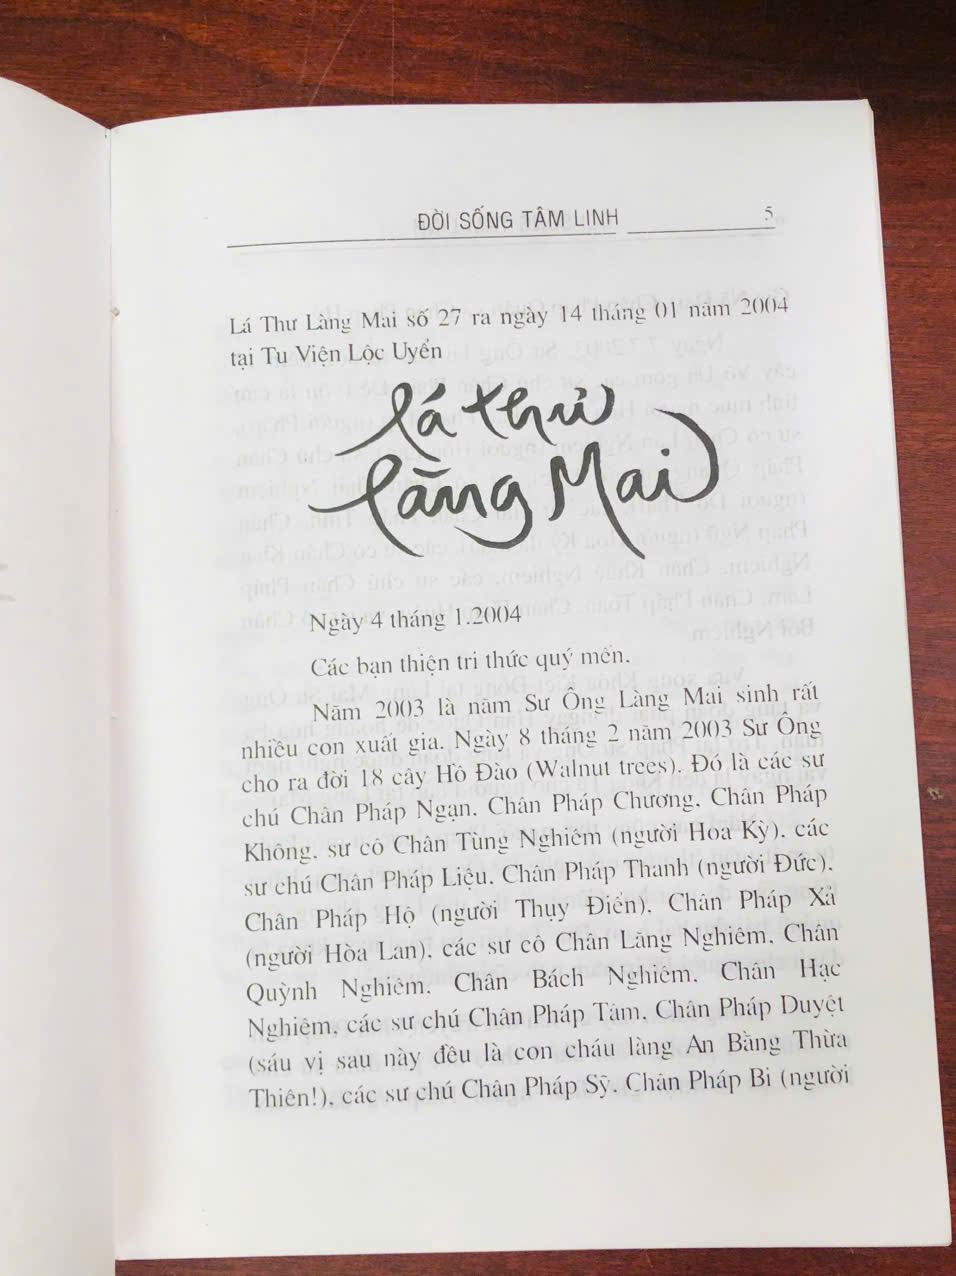 ĐỜI SỐNG TÂM LINH 5
Lá Thư Làng Mai số 27 ra ngày 14 tháng 01 năm 2004
tại Tu Viện Lộc Uyển
lá thư
làng Mai
Ngày 4 tháng 1.2004
Các bạn thiện tri thức quý mến.
Năm 2003 là năm Sư Ông Làng Mai sinh rất
nhiều con xuất gia. Ngày 8 tháng 2 năm 2003 Sư Ông
cho ra đời 18 cây Hồ Đào (Walnut trees). Đó là các sư
chú Chân Pháp Ngạn, Chân Pháp Chương, Chân Pháp
Không, sư cô Chân Tùng Nghiêm (người Hoa Kỳ), các
sư chú Chân Pháp Liệu, Chân Pháp Thanh (người Đức),
Chân Pháp Hộ (người Thụy Điển), Chân Pháp Xả
(người Hòa Lan), các sư cô Chân Lăng Nghiêm, Chân
Quỳnh Nghiêm, Chân Bách Nghiêm, Chân Hạc
Nghiêm, các sư chú Chân Pháp Tâm, Chân Pháp Duyệt
(sáu vị sau này đều là con cháu làng An Bằng Thừa
Thiên!), các sư chú Chân Pháp Sỹ, Chân Pháp Bi (người